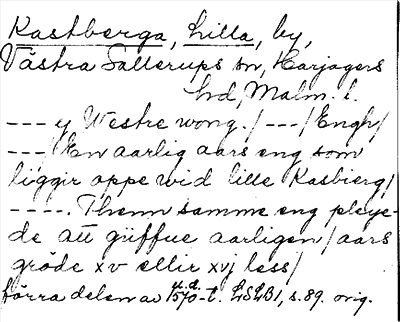 Kastberga, Lilla, by,
Västra Sallerups sn, Harjagers
hd, Malm. l.
--- y Westre wong. / --- / Engh /
--- / En aarlig aars eng som
liggir oppe wid lille Kasbierg /
----. Thenn samme eng pleye-
de att giiffue aarligen / aars
gröde xv ellir xvj less /
förra delen av 1570-t. LSLB1, s. 89. orig.